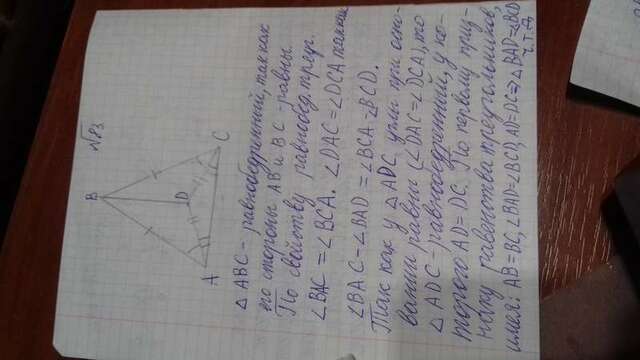 №83
B
D
A
C
△ABC - равнобедренный, так как
его стороны AB и BC - равны.
По свойству равнобед. треуг.
∠BAC = ∠BCA. ∠DAC = ∠DCA
∠BAC - ∠BAD = ∠BCA - ∠BCD.
Так как у △ADC углы при осно-
вании равны (∠DAC = ∠DCA), то
△ADC - равнобедренный, у ко-
торого AD = DC. По первому приз-
наку равенства треугольников,
имея: AB = BC, ∠BAD = ∠BCD, AD = DC ⇒ △BAD = △BCD
ч.т.д.